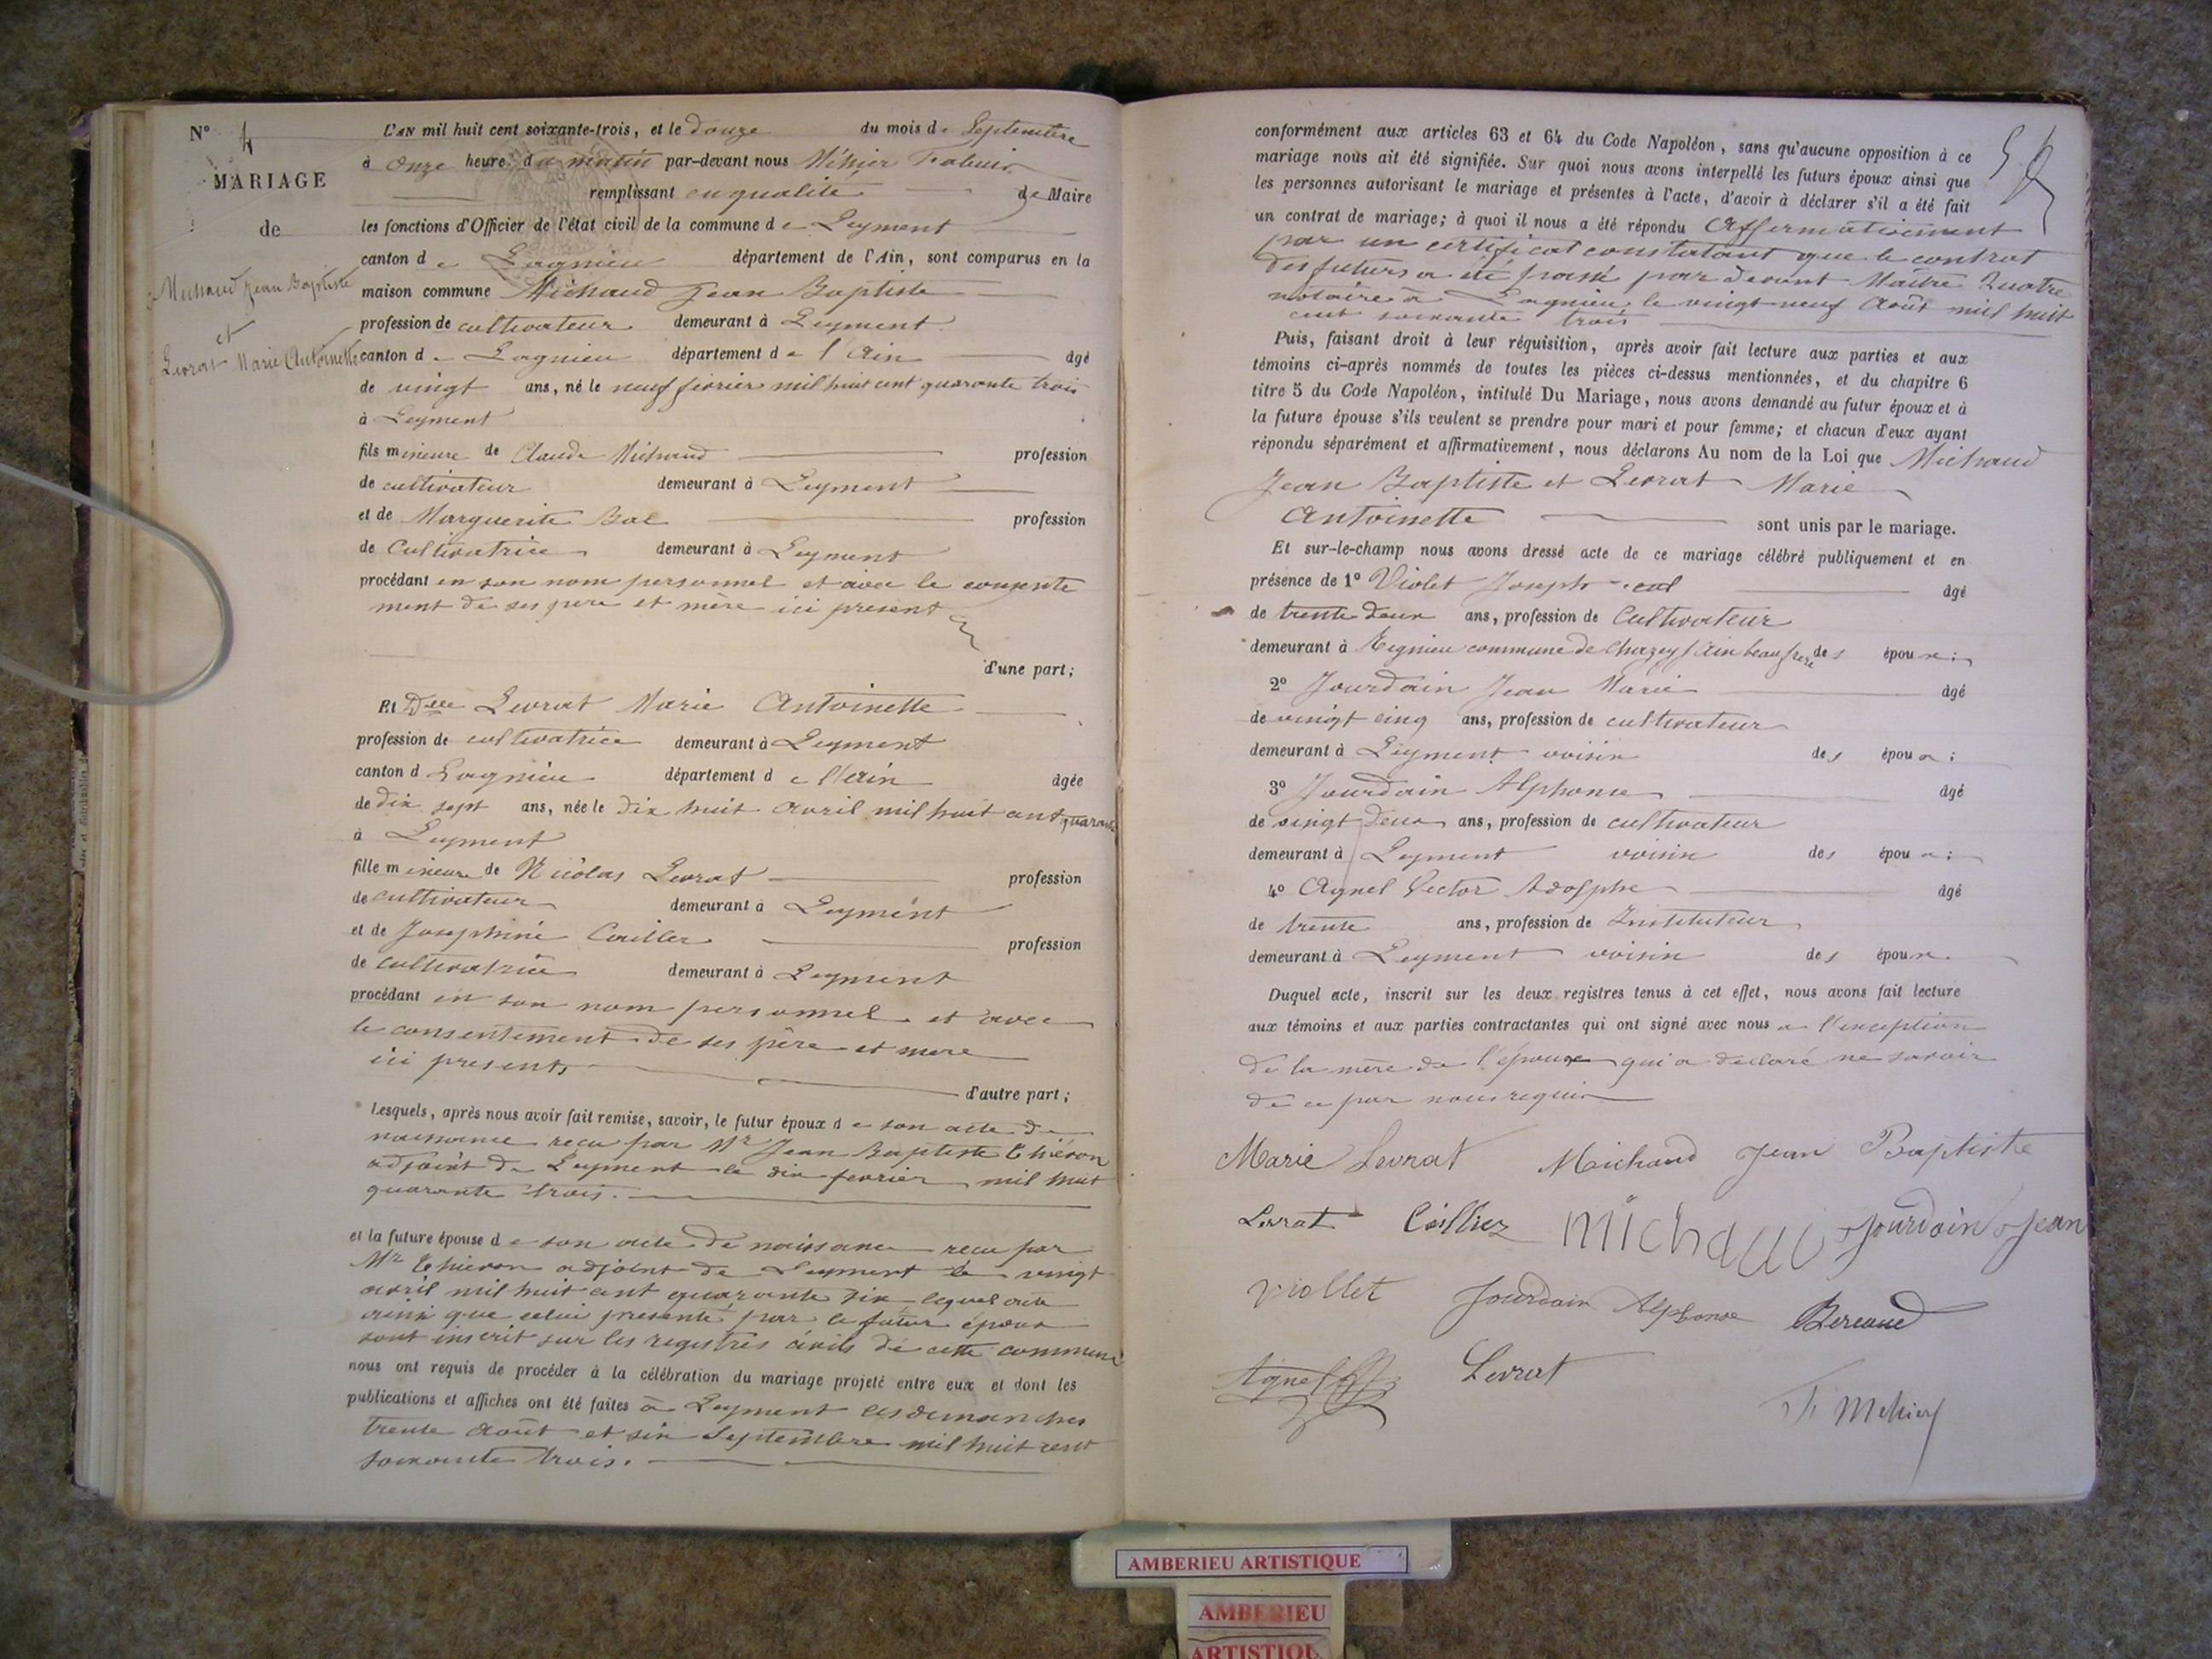 N° 4
MARIAGE
de
Michaud Jean Baptiste
et
Levrat Marie Antoinette
L'AN mil huit cent soixante-trois, et le douze du mois de Septembre
à onze heure du matin par-devant nous Méhier
remplissant en qualité de Maire
les fonctions d'Officier de l'état civil de la commune de Leyment
canton de Lagnieu département de l'Ain, sont comparus en la
maison commune Michaud Jean Baptiste
profession de cultivateur demeurant à Leyment
canton de Lagnieu département de l'Ain âgé
de vingt ans, né le neuf fevrier mil huit cent quarante trois
à Leyment
fils mineure de Claude Michaud profession
de cultivateur demeurant à Leyment
et de Marguerite Bal profession
de Cultivatrice demeurant à Leyment
procédant en son nom personnel et avec le consente
ment de ses pere et mère ici present
d'une part;
Et Dlle Levrat Marie Antoinette
profession de cultivatrice demeurant à Leyment
canton d Lagnieu département de l'Ain âgée
de dix sept ans, née le dix huit avril mil huit cent quarante
à Leyment
fille mineure de Nicolas Levrat profession
de cultivateur demeurant à Leyment
et de Josephine Cailler profession
de cultivatrice demeurant à Leyment
procédant en son nom personnel et avec
le consentement de ses père et mere
ici presents
d'autre part;
Lesquels, après nous avoir fait remise, savoir, le futur époux de son acte de
naissance reçu par Mr Jean Baptiste Thiéron
adjoint de Leyment le dix fevrier mil huit
quarante trois.
et la future épouse de son acte de naissance reçu par
Mr Thieron adjoint de Leyment le vingt
avril mil huit cent quarante six lequel acte
ainsi que celui presenté par le futur époux
sont inscrit sur les registres civils de cette commune
nous ont requis de procéder à la célébration du mariage projeté entre eux et dont les
publications et affiches ont été faites à Leyment les demanches
trente Août et six Septembre mil huit cent
soixante trois.
conformément aux articles 63 et 64 du Code Napoléon, sans qu'aucune opposition à ce
mariage nous ait été signifiée. Sur quoi nous avons interpellé les futurs époux ainsi que
les personnes autorisant le mariage et présentes à l'acte, d'avoir à déclarer s'il a été fait
un contrat de mariage; à quoi il nous a été répondu Affermativement
par un certificat constatant que le contrat
des futurs a été passé par devant Maitre Quatre
notaire à Lagnieu le vingt neuf Août mil huit
cent soixante trois
Puis, faisant droit à leur réquisition, après avoir fait lecture aux parties et aux
témoins ci-après nommés de toutes les pièces ci-dessus mentionnées, et du chapitre 6
titre 5 du Code Napoléon, intitulé Du Mariage, nous avons demandé au futur époux et à
la future épouse s'ils veulent se prendre pour mari et pour femme; et chacun d'eux ayant
répondu séparément et affirmativement, nous déclarons Au nom de la Loi que Michaud
Jean Baptiste et Levrat Marie
Antoinette sont unis par le mariage.
Et sur-le-champ nous avons dressé acte de ce mariage célébré publiquement et en
présence de 1° Violet Joseph âgé
de trente deux ans, profession de Cultivateur
demeurant à Rignieu commune de Chazey s Ain beaufrere des époux;
2° Jourdain Jean Marie âgé
de vingt cinq ans, profession de cultivateur
demeurant à Leyment voisin des époux;
3° Jourdain Alphonse âgé
de vingt deux ans, profession de cultivateur
demeurant à Leyment voisin des époux;
4° Agnel Victor Adolphe âgé
de trente ans, profession de Instituteur
demeurant à Leyment voisin des époux.
Duquel acte, inscrit sur les deux registres tenus à cet effet, nous avons fait lecture
aux témoins et aux parties contractantes qui ont signé avec nous a l'exception
de la mère de l'époux qui a declaré ne savoir
de ce par nous requis
Marie Levrat Maichaud Jean Baptiste
Levrat Cailler Michaud Jourdain Jean
Viollet Jourdain Alphonse Bereaud
Agnel Levrat
F. Mehier
AMBERIEU ARTISTIQUE
AMBERIEU
ARTISTIQU